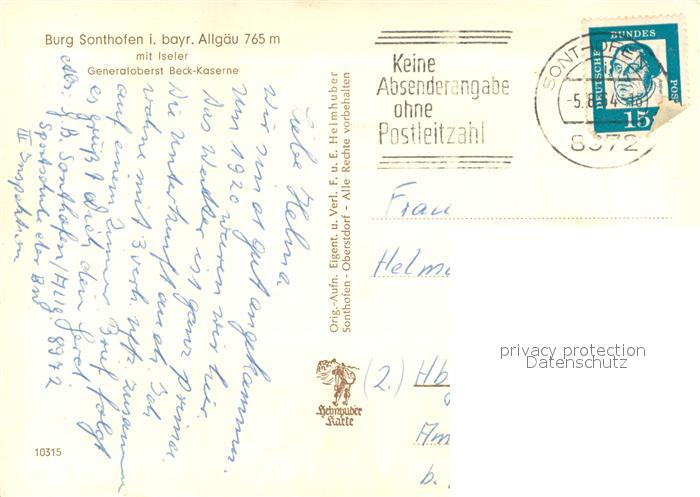 Burg Sonthofen i. bayr. Allgäu 765 m
mit Iseler
Generaloberst Beck-Kaserne
Liebe Helma.
Wir sind gut angekommen.
Um 1920 waren wir hier.
Das Wetter ist ganz prima.
Die Unterkunft auch. Ich
wohne mit 3 verh. Uffz zusammen
auf einem Zimmer. Brief folgt
es grüßt Dich dein Gerd
Abs. z.Z. Sonthofen/Allg. 8972
Sportschule der Bw
III Inspektion
10315
Orig.-Aufn. Eigent. u. Verl. F. u. E. Heimhuber
Sonthofen - Oberstdorf - Alle Rechte vorbehalten
Heimhuber
Karte
Keine
Absenderangabe
ohne
Postleitzahl
SONTHOFEN
-5.8.64
8972
DEUTSCHE BUNDESPOST
15
Frau
Helma
(2.) Hb
Am
b.
privacy protection
Datenschutz